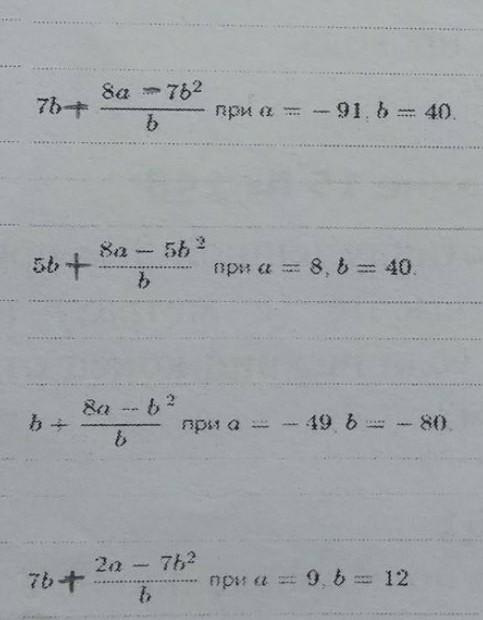 7b + (8a − 7b²)/b при a = − 91, b = 40.
5b + (8a − 5b²)/b при a = 8, b = 40.
b + (8a − b²)/b при a = − 49, b = − 80.
7b + (2a − 7b²)/b при a = 9, b = 12